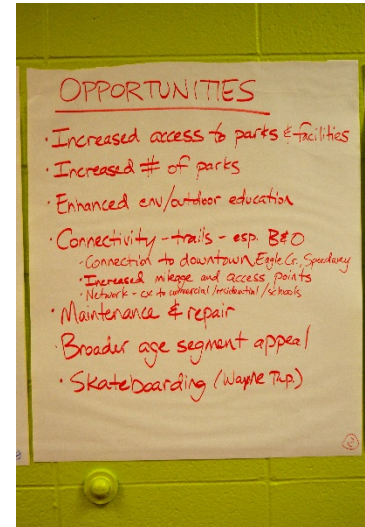 OPPORTUNITIES
· Increased access to parks & facilities
· Increased # of parks
· Enhanced env/outdoor education
· Connectivity - trails - esp. B&O
· Connection to downtown, Eagle Cr., Speedway
· Increased mileage and access points
· Network - cx to commercial/residential/schools
· Maintenance & repair
· Broader age segment appeal
· Skateboarding (Wayne Twp.)